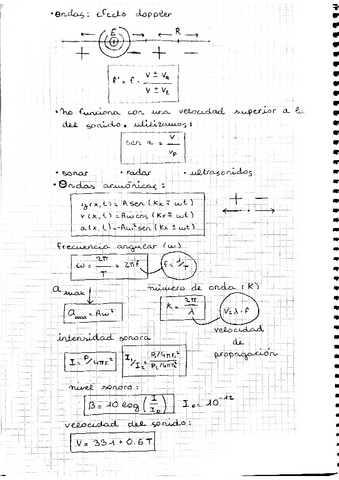 • Ondas: Efecto doppler
+ - E - + R + -
f' = f · (V ± V_R) / (V ± V_E)
• no funciona con una velocidad superior a la
del sonido. utilizamos:
sen α = V / V_P
• sonar • radar • ultrasonidos
• Ondas armónicas:
y(x,t) = A sen(Kx ∓ ωt)
+ -
v(x,t) = Aω cos(Kx ∓ ωt)
a(x,t) = -Aω² sen(Kx ± ωt)
frecuencia angular (ω)
ω = 2π/T = 2πf F = 1/T
A max número de onda: (K)
a max = Aω² K = 2π/λ V = λ·f
velocidad
de
propagación
intensidad sonora
I = P/4πr² I₁/I₂ = P₁/4πr₁² / P₂/4πr₂²
nivel sonoro:
β = 10 log (I/I₀) I₀ = 10⁻¹²
velocidad del sonido:
V = 331 + 0.6T